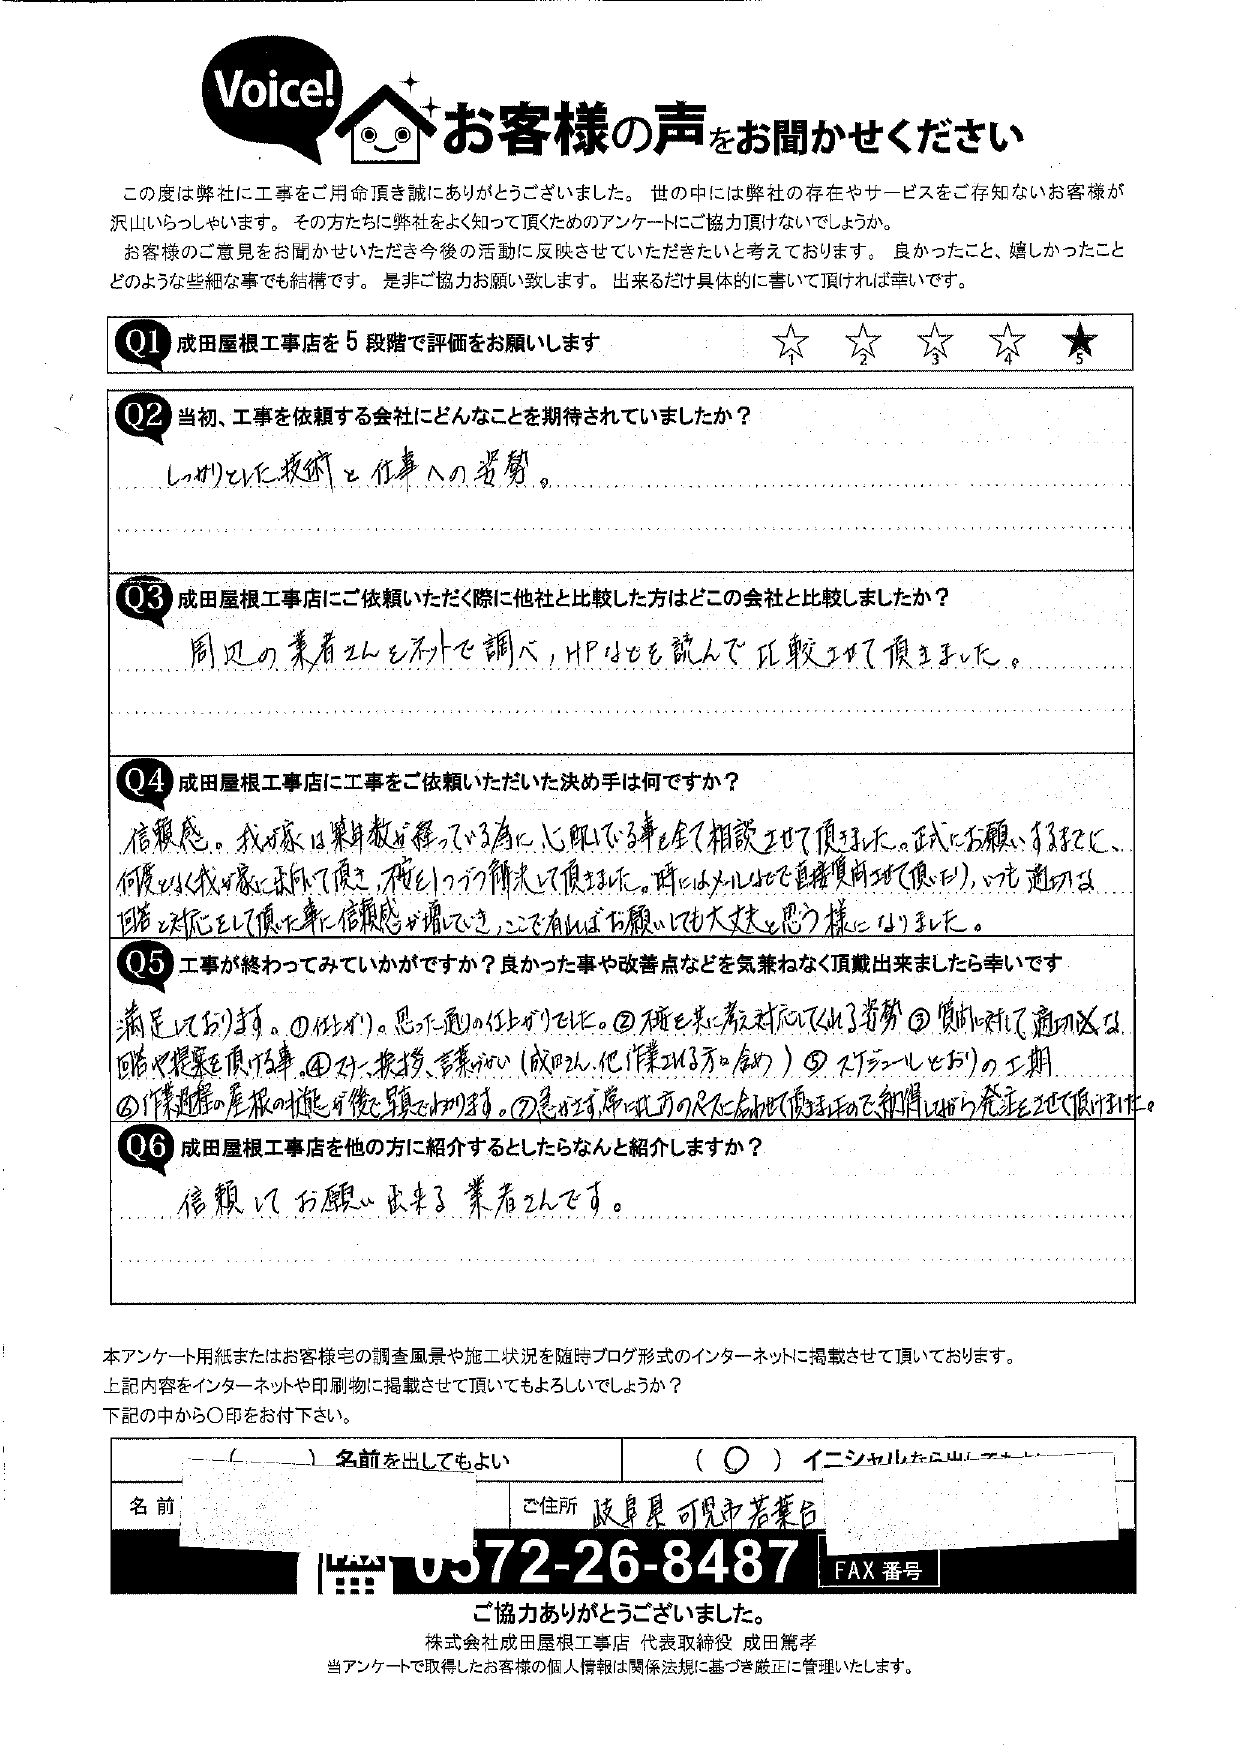 Voice!
お客様の声をお聞かせください
この度は弊社に工事をご用命頂き誠にありがとうございました。 世の中には弊社の存在やサービスをご存知ないお客様が
沢山いらっしゃいます。 その方たちに弊社をよく知って頂くためのアンケートにご協力頂けないでしょうか。
お客様のご意見をお聞かせいただき今後の活動に反映させていただきたいと考えております。 良かったこと、嬉しかったこと
どのような些細な事でも結構です。 是非ご協力お願い致します。 出来るだけ具体的に書いて頂ければ幸いです。
Q1 成田屋根工事店を 5 段階で評価をお願いします ☆1 ☆2 ☆3 ☆4 ★5
Q2 当初、工事を依頼する会社にどんなことを期待されていましたか？
しっかりとした技術と仕事への姿勢。
Q3 成田屋根工事店にご依頼いただく際に他社と比較した方はどこの会社と比較しましたか？
周辺の業者さんをネットで調べ, HPなどを読んで比較させて頂きました。
Q4 成田屋根工事店に工事をご依頼いただいた決め手は何ですか？
信頼感。我が家は築年数が経っている為に心配している事を全て相談させて頂きました。正式にお願いするまでに、
何度となく我が家に出向いて頂き, 不安を1つづつ解決して頂きました。時にはメールなどで直接質問させて頂いたり, いつも適切な
回答と対応をして頂いた事に信頼感が増していき, ここで有ればお願いしても大丈夫と思う様になりました。
Q5 工事が終わってみていかがですか？良かった事や改善点などを気兼ねなく頂戴出来ましたら幸いです
満足しております。①仕上がり。思った通りの仕上がりでした。②不安を共に考え対応してくれる姿勢 ③質問に対して適切な
回答や提案を頂ける事。④マナー、挨拶、言葉づかい (成田さん、他作業される方も含め) ⑤スケジュールどおりの工期
⑥作業過程の屋根の状態が後で写真でわかります。⑦急かさず常に此方のペースに合わせて頂きましたので、納得しながら発注をさせて頂けました。
Q6 成田屋根工事店を他の方に紹介するとしたらなんと紹介しますか？
信頼してお願い出来る業者さんです。
本アンケート用紙またはお客様宅の調査風景や施工状況を随時ブログ形式のインターネットに掲載させて頂いております。
上記内容をインターネットや印刷物に掲載させて頂いてもよろしいでしょうか？
下記の中から〇印をお付下さい。
( ) 名前を出してもよい ( 〇 ) イニシャルなら出しても
名前 ご住所 岐阜県可児市若葉台
FAX 0572-26-8487 FAX 番号
ご協力ありがとうございました。
株式会社成田屋根工事店 代表取締役 成田篤孝
当アンケートで取得したお客様の個人情報は関係法規に基づき厳正に管理いたします。